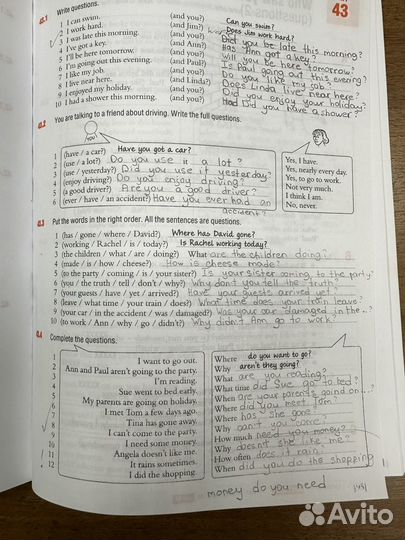 43
43.1 Write questions.
1 I can swim. (and you?) Can you swim?
2 I work hard. (and Jim?) Does Jim work hard?
3 I was late this morning. (and you?) Did you be late this morning?
4 I've got a key. (and Ann?) Has Ann got a key?
5 I'll be here tomorrow. (and you?) Will you be here tomorrow?
6 I'm going out this evening. (and Paul?) Is Paul going out this evening?
7 I like my job. (and you?) Do you like my job?
8 I live near here. (and Linda?) Does Linda live near here?
9 I enjoyed my holiday. (and you?) Did you enjoy your holiday?
10 I had a shower this morning. (and you?) Had Did you have a shower?
43.2 You are talking to a friend about driving. Write the full questions.
YOU
1 (have / a car?) Have you got a car? Yes, I have.
2 (use / a lot?) Do you use it a lot? Yes, nearly every day.
3 (use / yesterday?) Did you use it yesterday? Yes, to go to work.
4 (enjoy driving?) Do you enjoy driving? Not very much.
5 (a good driver?) Are you a good driver? I think I am.
6 (ever / have / an accident?) Have you ever had an accident? No, never.
43.3 Put the words in the right order. All the sentences are questions.
1 (has / gone / where / David?) Where has David gone?
2 (working / Rachel / is / today?) Is Rachel working today?
3 (the children / what / are / doing?) What are the children doing?
4 (made / is / how / cheese?) How is cheese made?
5 (to the party / coming / is / your sister?) Is your sister coming to the party?
6 (you / the truth / tell / don't / why?) Why don't you tell the truth?
7 (your guests / have / yet / arrived?) Have your guests arrived yet?
8 (leave / what time / your train / does?) What time does your train leave?
9 (your car / in the accident / was / damaged?) Was your car damaged in the..?
10 (to work / Ann / why / go / didn't?) Why didn't Ann go to work?
43.4 Complete the questions.
1 I want to go out. Where do you want to go?
2 Ann and Paul aren't going to the party. Why aren't they going?
3 I'm reading. What are you reading?
4 Sue went to bed early. What time did Sue go to bed?
5 My parents are going on holiday. When are your parents goind on...?
6 I met Tom a few days ago. Where did you meet Tom?
7 Tina has gone away. Where has she gone?
8 I can't come to the party. Why can't you come?
9 I need some money. How much need you money?
10 Angela doesn't like me. Why doesn't she like me?
11 It rains sometimes. How often does it rain
12 I did the shopping. When did you do the shopping
money do you need
Avito